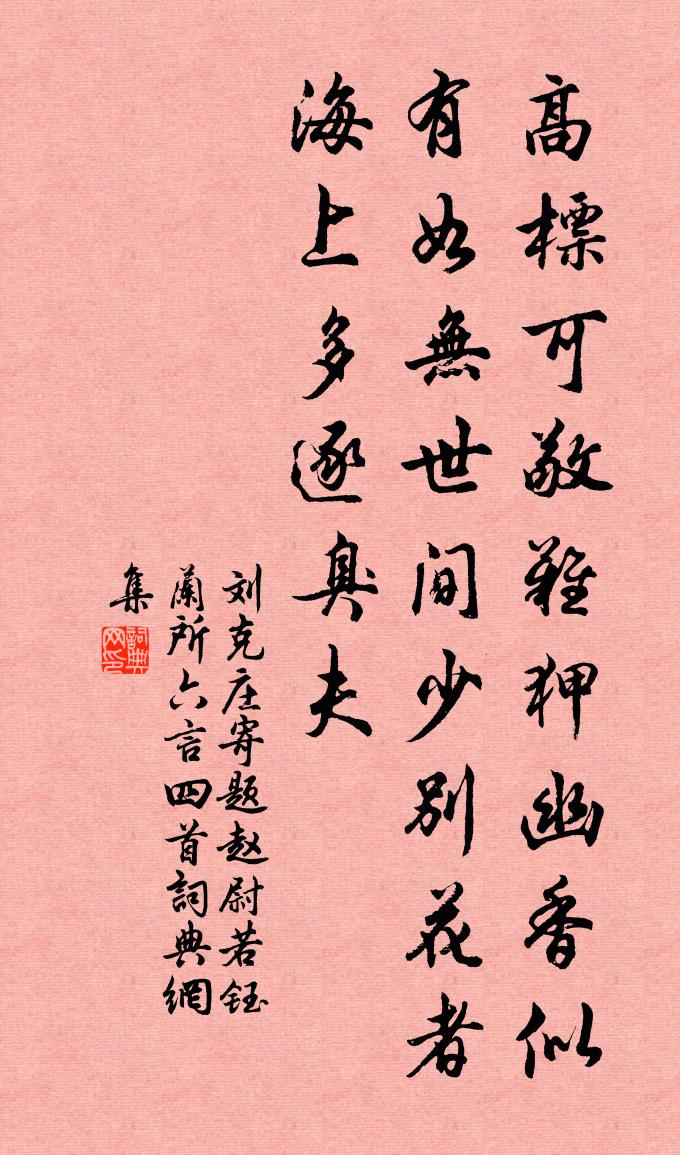 高標可敬難狎幽香似
有如無世間少別花者
海上多逐臭夫
刘克庄寄题赵尉若钰
蘭所六言四首詞典網
集
詞典网印